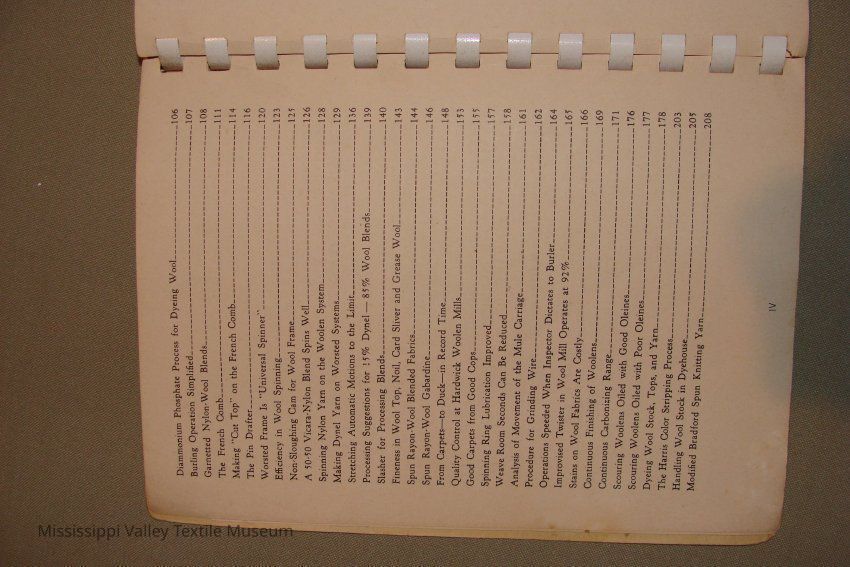 Diammonium Phosphate Process for Dyeing Wool 106
Burling Operation Simplified 107
Garnetted Nylon-Wool Blends 108
The French Comb 111
Making "Cut Top" on the French Comb 114
The Pin Drafter 116
Worsted Frame Is "Universal Spinner" 120
Efficiency in Wool Spinning 123
Non-Sloughing Cam for Wool Frame 125
A 50-50 Vicara-Nylon Blend Spins Well 126
Spinning Nylon Yarn on the Woolen System 128
Making Dynel Yarn on Worsted Systems 129
Stretching Automatic Motions to the Limit 136
Processing Suggestions for 15% Dynel — 85% Wool Blends 139
Slasher for Processing Blends 140
Fineness in Wool Top, Noil, Card Sliver and Grease Wool 143
Spun Rayon-Wool Blended Fabrics 144
Spun Rayon-Wool Gabardine 146
From Carpets—to Duck—in Record Time 148
Quality Control at Hardwick Woolen Mills 153
Good Carpets from Good Cops 155
Spinning Ring Lubrication Improved 157
Weave Room Seconds Can Be Reduced 158
Analysis of Movement of the Mule Carriage 161
Procedure for Grinding Wire 162
Operations Speeded When Inspector Dictates to Burler 164
Improvised Twister in Wool Mill Operates at 92% 165
Stains on Wool Fabrics Are Costly 166
Continuous Finishing of Woolens 169
Continuous Carbonizing Range 171
Scouring Woolens Oiled with Good Oleines 176
Scouring Woolens Oiled with Poor Oleines 177
Dyeing Wool Stock, Tops, and Yarn 178
The Harris Color Stripping Process 203
Handling Wool Stock in Dyehouse 205
Modified Bradford Spun Knitting Yarn 208
IV
Mississippi Valley Textile Museum